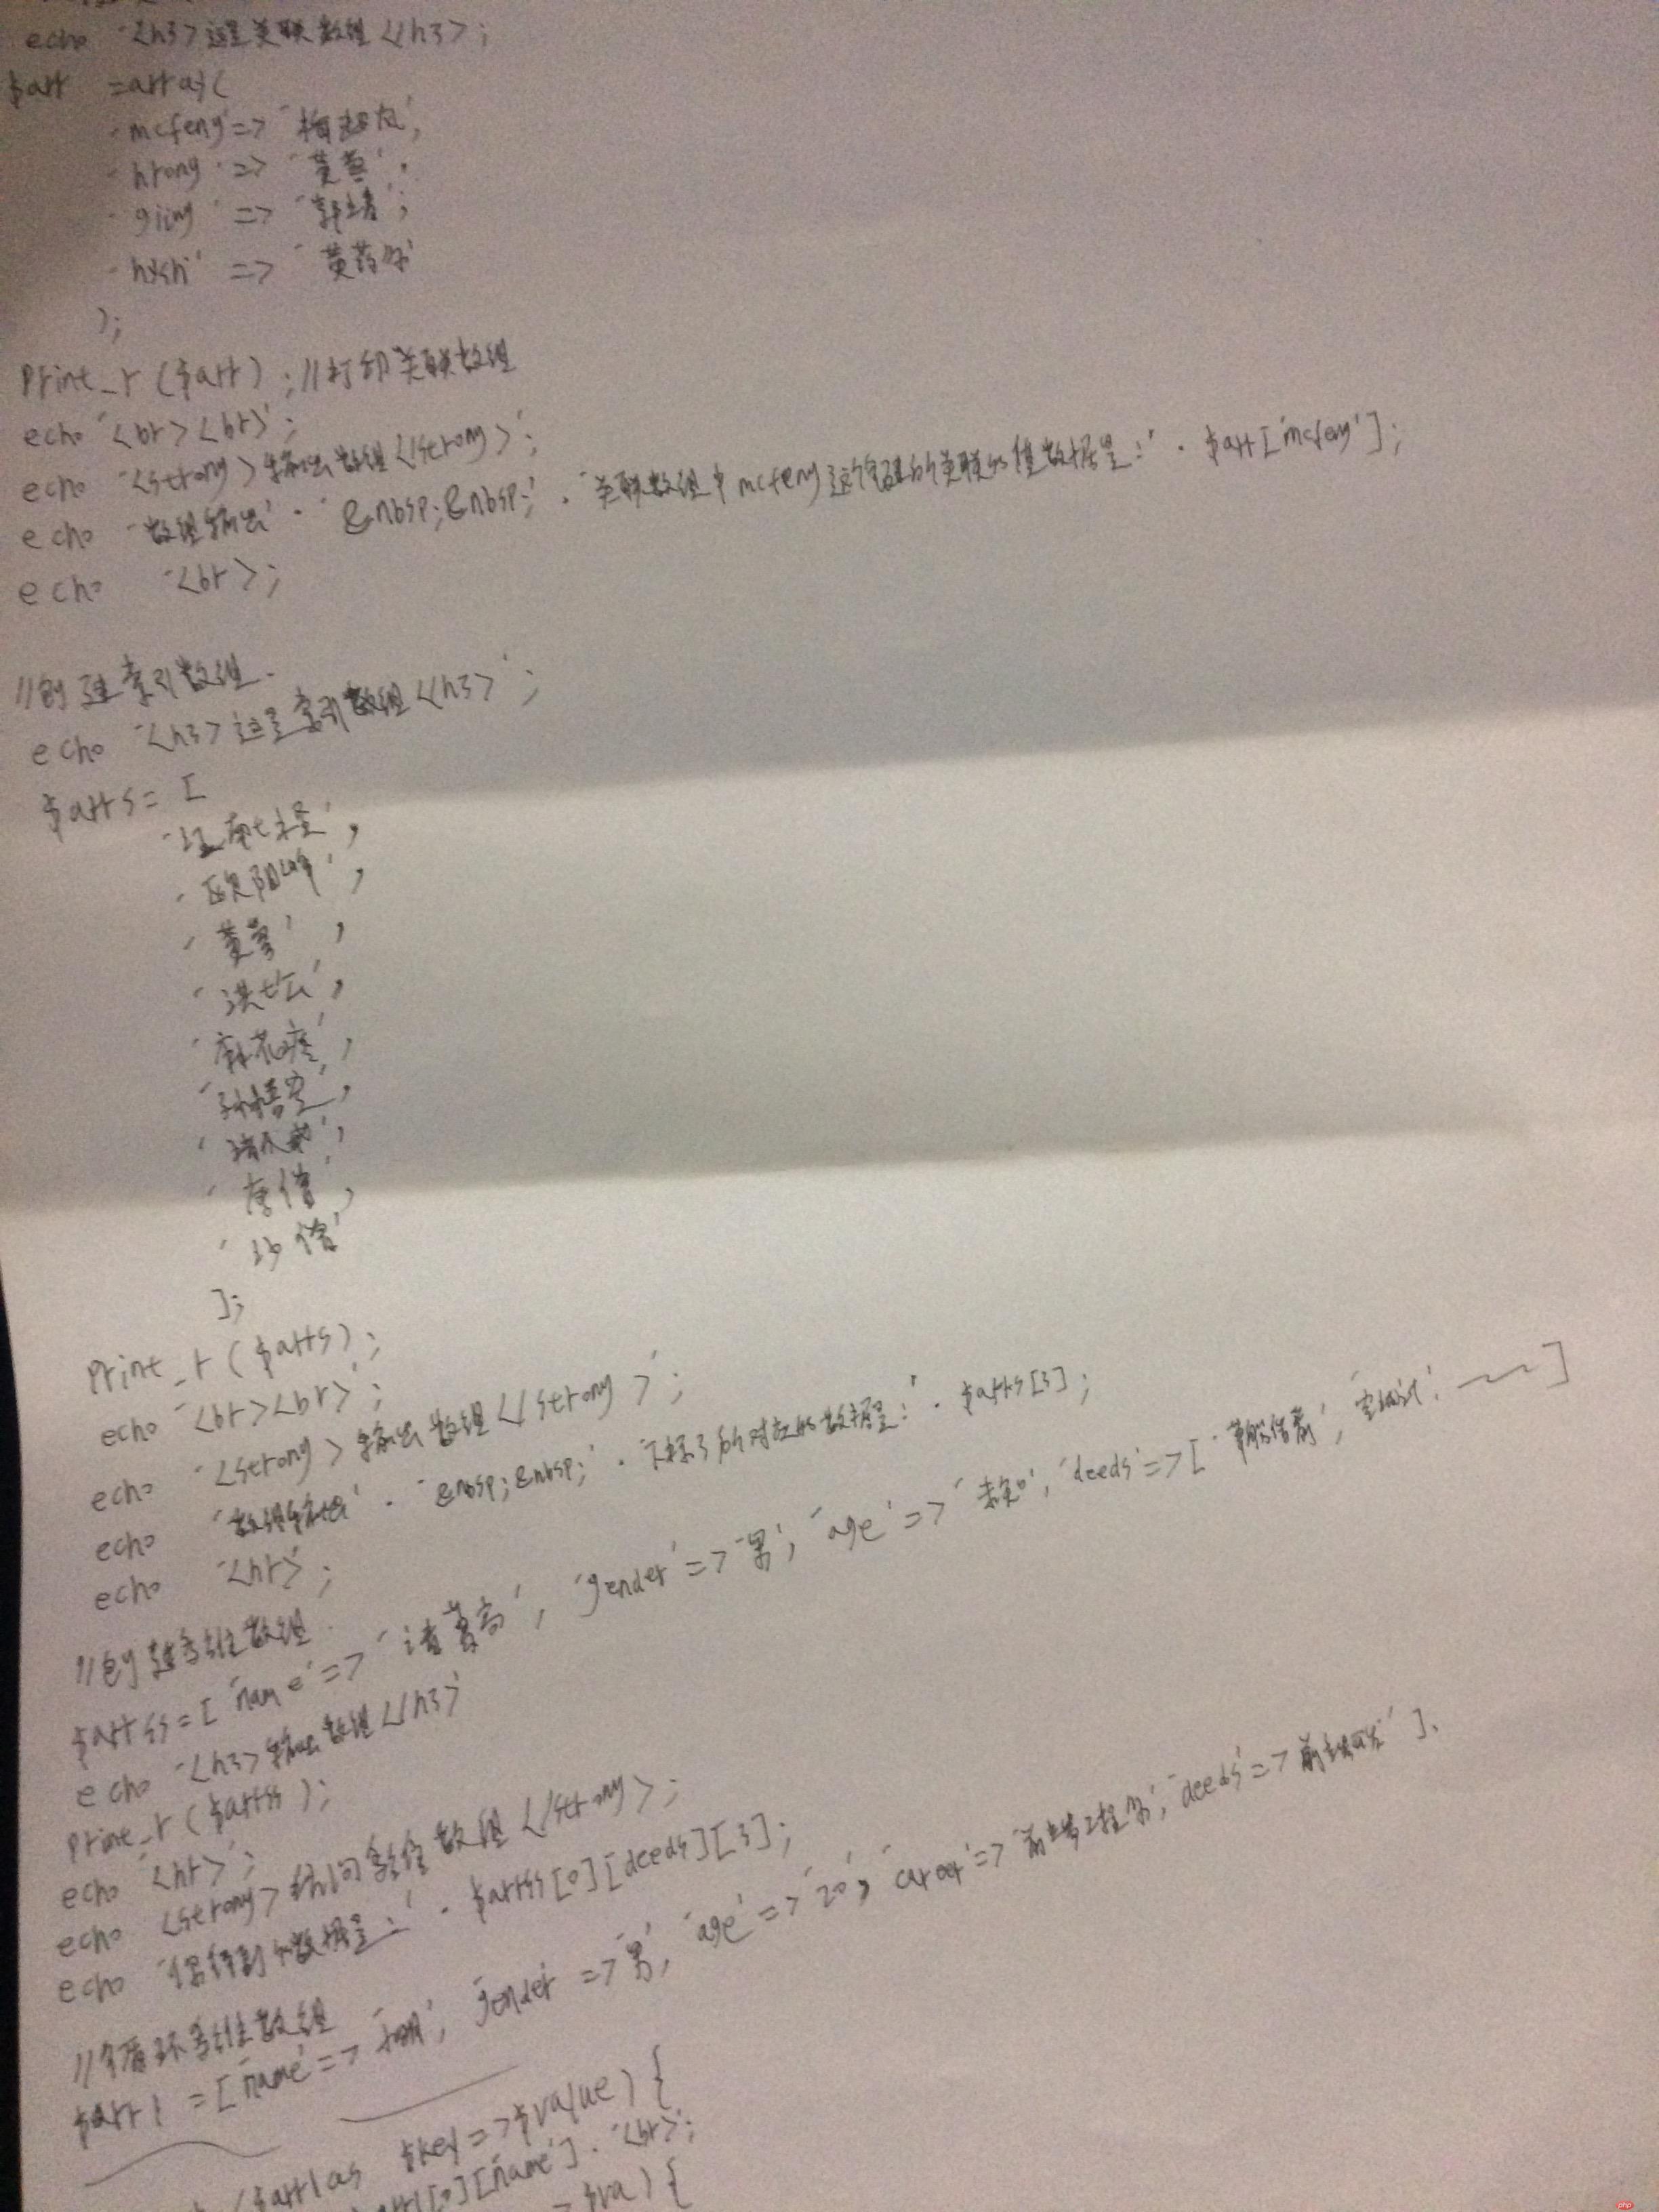 echo '<h3>这是关联数组</h3>;
$arr =array(
'mcfeng'=> '梅超风',
'hrong' => '黄蓉',
'gjing' => '郭靖',
'hyshi' => '黄药师'
);
Print_r ($arr) ; //打印关联数组
echo '<br><br>';
echo '<strong>输出数组</strong>';
echo '数组输出' . '&nbsp;&nbsp;' . '关联数组中mcfeng这个键的关联的值数据是:' . $arr['mcfeng'];
echo '<br>;
//创建索引数组.
echo '<h3>这是索引数组</h3>';
$arrs= [
'江南七怪',
'欧阳峰',
'黄蓉',
'洪七公',
'孙悟空',
'猪八戒',
'唐僧',
'沙僧'
];
Print_r ($arrs);
echo '<br><br>';
echo '<strong>输出数组</strong>';
echo '数组输出' . '&nbsp;&nbsp;' . 下标3所对应的数据是:' . $arrs[3];
echo '<hr>';
//创建多维数组
$arrss=['name'=>'诸葛亮', 'gender'=>'男', 'age'=>'未知', 'deeds'=>['草船借箭', ]
echo '<h3>输出数组</h3>'
Print_r ($arrss);
echo '<hr>';
echo <strong>访问多维数组</strong>;
echo '得到的数据是:' . $arrss[0][deeds][3];
//循环多维数组
$arr1 =['name'=> , 'gender =>'男', 'age'=>'20', 'career'=>'前端工程师', 'deeds'=> ],
($arr1 as $key=>$value) {
[0]['name'] . '<br>';
=> $va) {
php